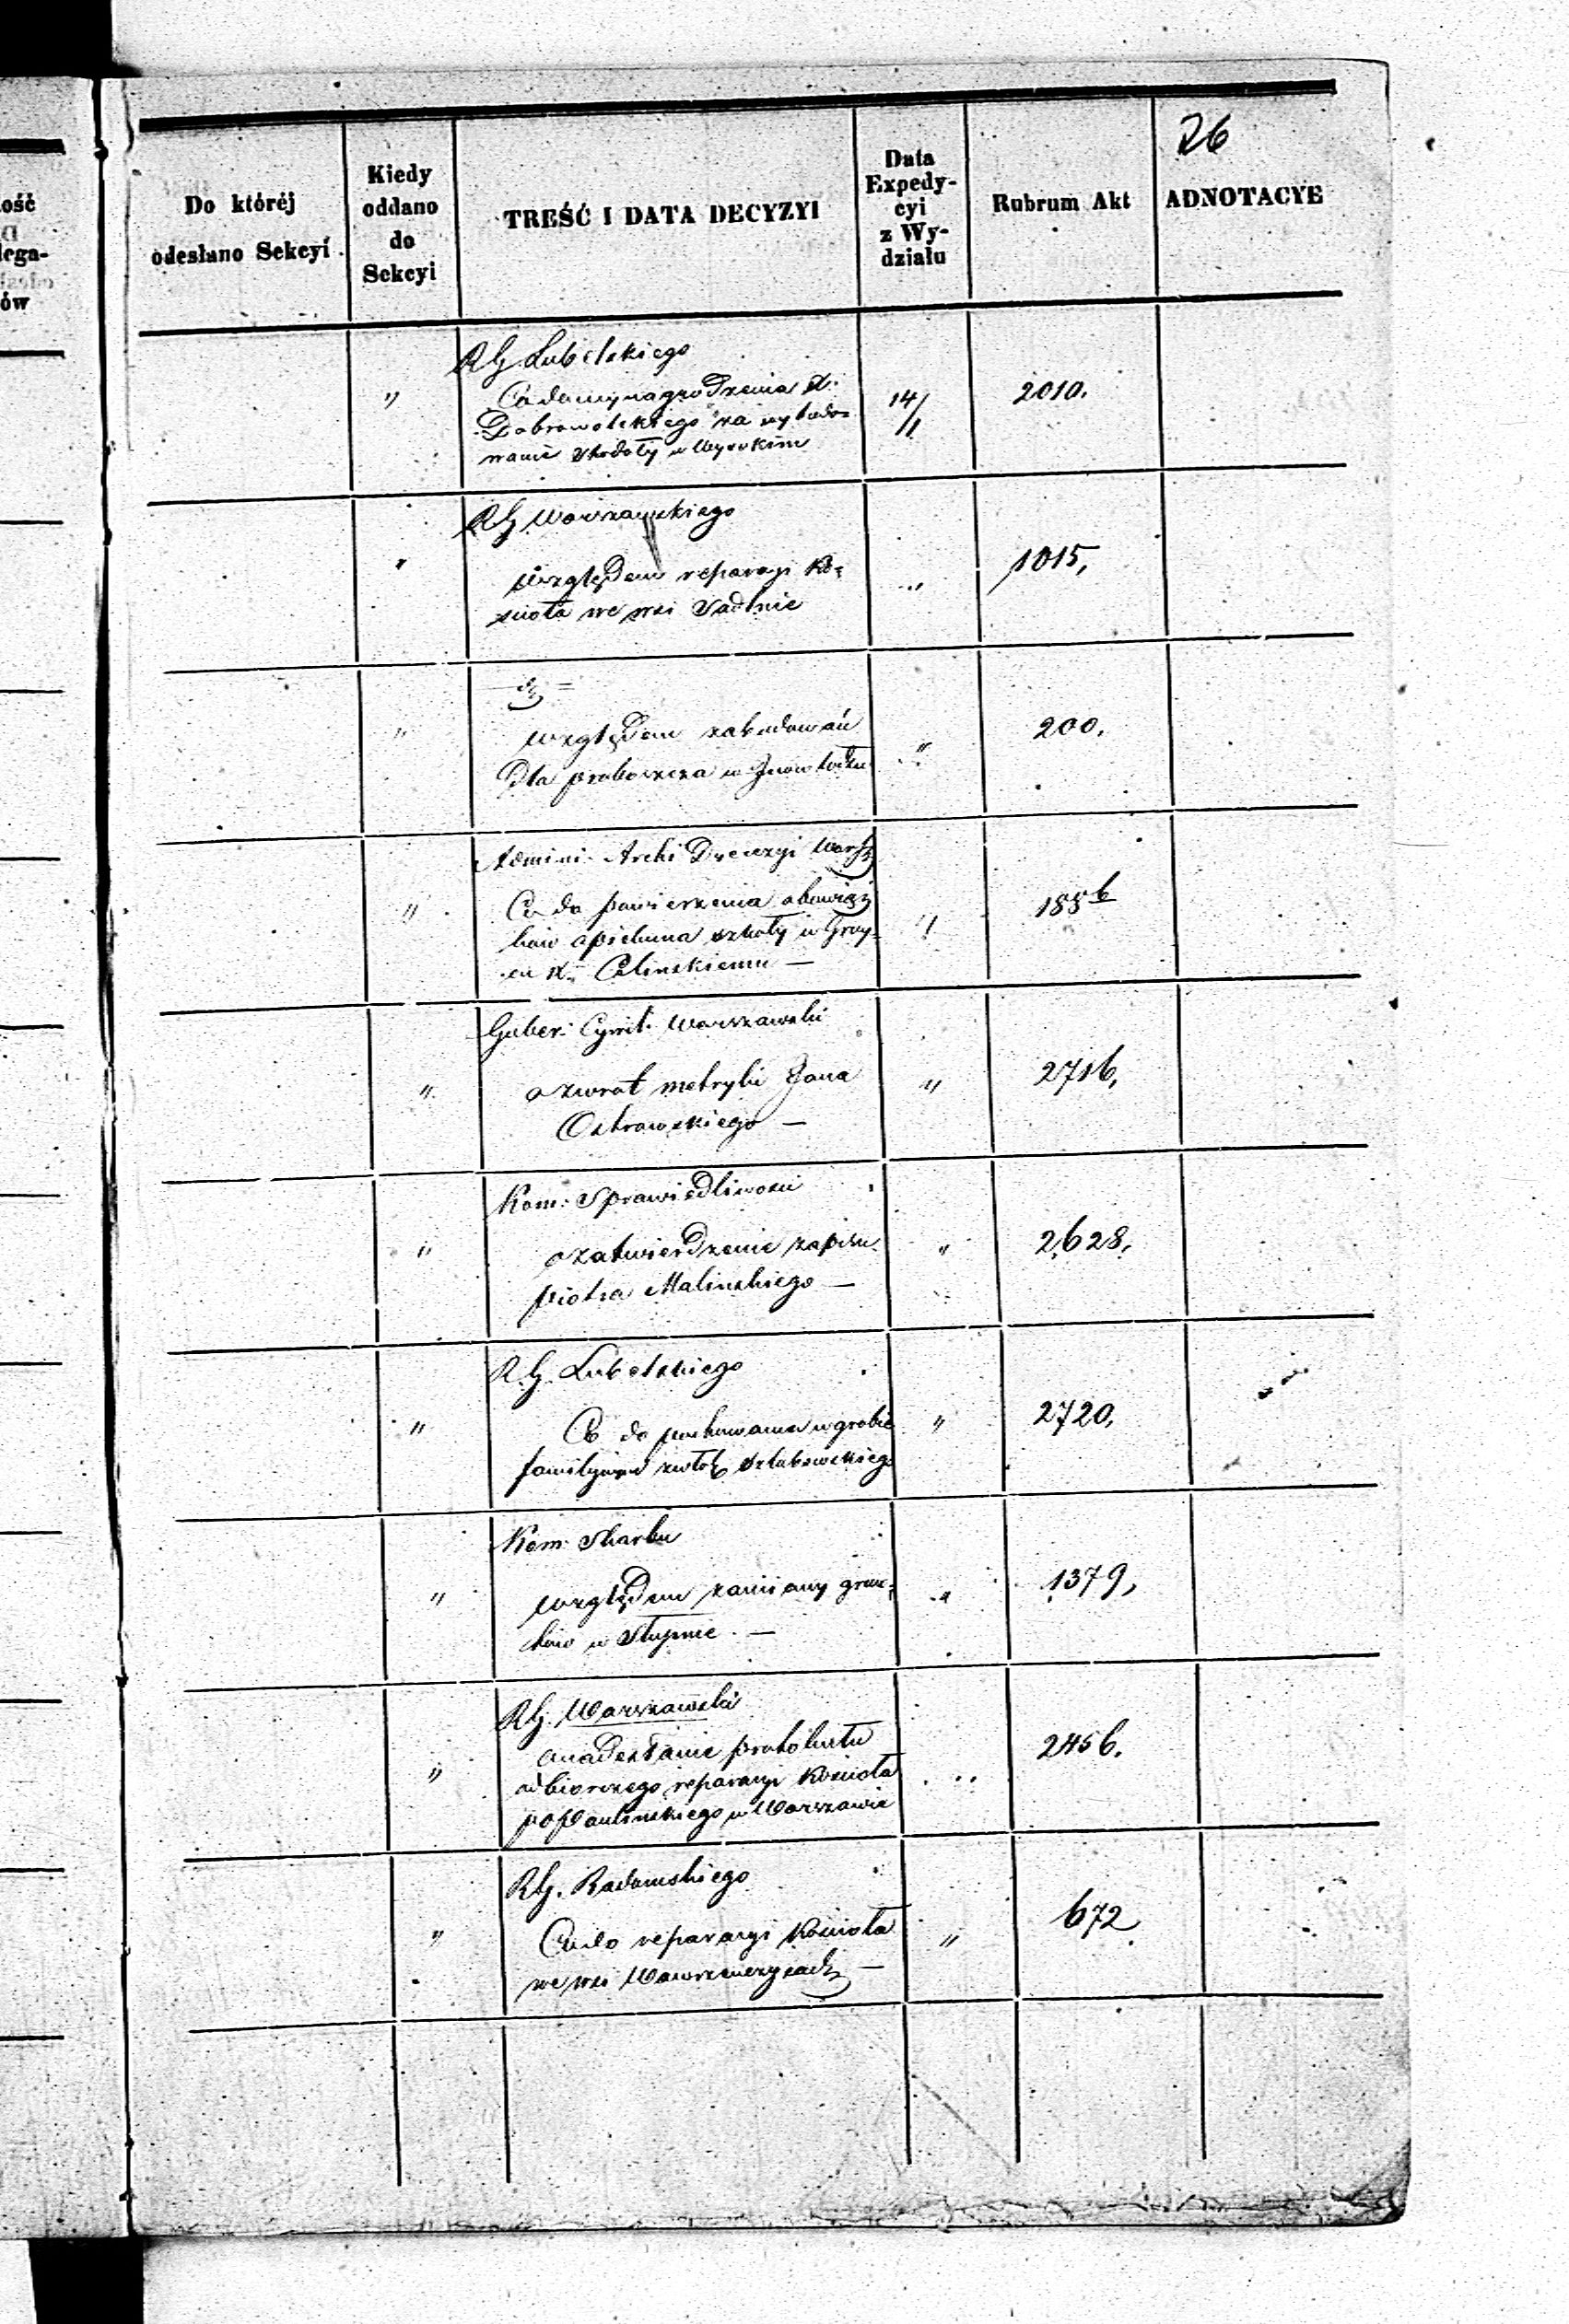 26
Do któréj
odesłano Sekcyi
Kiedy
oddano
do
Sekcyi
TREŚĆ I DATA DECYZYI
Data
Expedy-
cyi
z Wy-
działu
Rubrum Akt
ADNOTACYE
ość
lega-
ów
RG Lubelskiego
Co do wynagrodzenia X.
" 14/1 2010.
Dobrowolskiego za wybudo-
wanie Stodoły w Wysokim
RG Warszawskiego
względem reparacyi Ko-
" " 1015,
ścioła we wsi Sadlnie
względem zabudowań
" " 200.
Dla proboszcza w Inowłodzu
Admini. Archi Dyecezyi Warsz
Co do powierzenia obowiąz
" "
ków opiekuna szkoły w Gróy-
cu X. Celinskiemu —
Guber. Cywil. Warszawski
o zwrot metryki Jana
" " 2716,
Ostrowskiego —
Kom: Sprawiedliwości
o zatwierdzenie zapisu
" " 2628,
piotra Malinskiego —
R.G. Lubelskiego
Co do pochowania w grobie
" " 2720,
familijnym zwłok
Kom: Skarbu
względem zamiany grun-
" " 1379,
tów w Słupnie. —
RG. Warszawski
o nadesłanie protokułu
" " 2456.
odbiorczego reparacyi Kościoła
po Paulinskiego w Warszawie
RG. Radomskiego
Co do reparacyi Kościoła
" " 672
we wsi Wawrzenczycach —